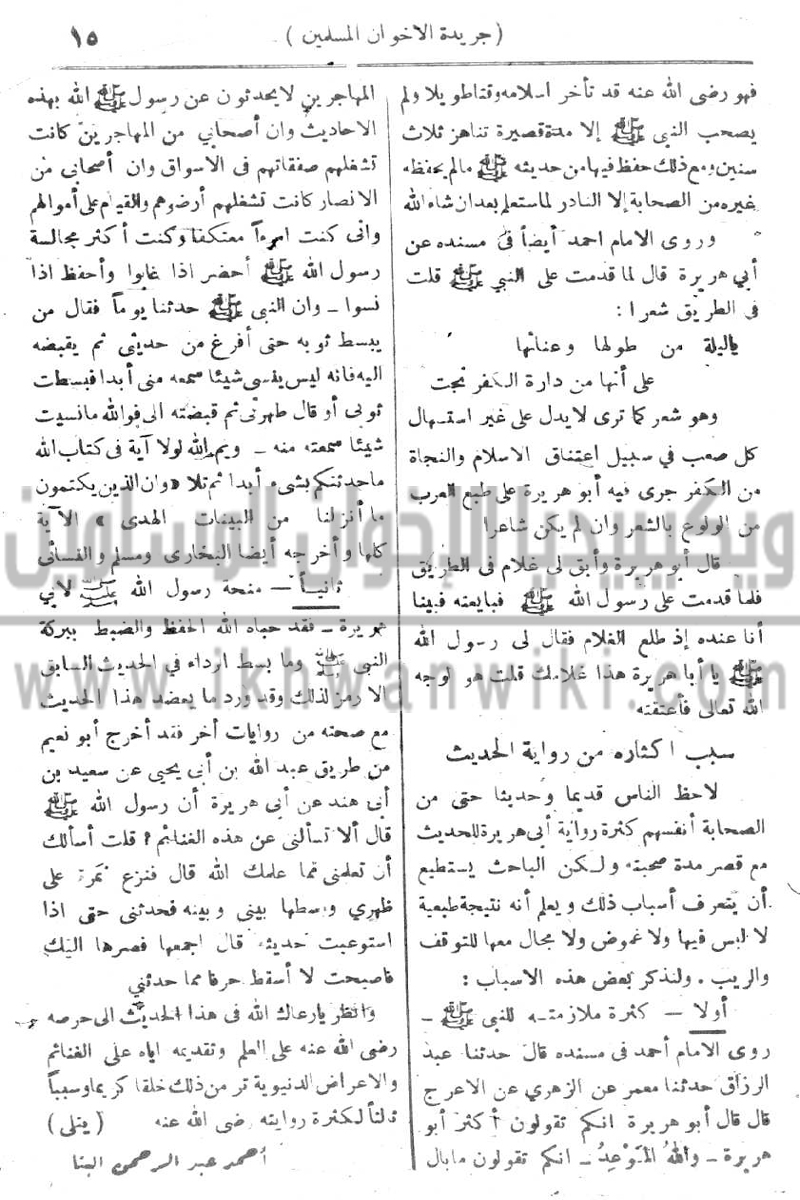 (جريدة الاخوان المسلمين) ١٥
فهو رضى الله عنه قد تأخر اسلامه وقتا طويلا ولم
يصحب النبي ﷺ إلا مدة قصيرة تناهز ثلاث
سنين ومع ذلك حفظ فيها من حديثه ﷺ مالم يحفظه
غيره من الصحابة إلا النادر لما ستعلم بعد ان شاء الله
وروى الامام احمد أيضاً فى مسنده عن
أبي هريرة قال لما قدمت على النبي ﷺ قلت
فى الطريق شعرا :
ياليلة من طولها وعنائها
على أنها من دارة الكفر نجت
وهو شعر كما ترى لا يدل على غير استسهال
كل صعب في سبيل اعتناق الاسلام والنجاة
من الكفر جرى فيه أبو هريرة على طبع العرب
من الولوع بالشعر وان لم يكن شاعرا
قال أبو هريرة وأبق لى غلام فى الطريق
فلما قدمت على رسول الله ﷺ فبايعته فبينا
أنا عنده إذ طلع الغلام فقال لى رسول الله
ﷺ يا أبا هريرة هذا غلامك قلت هو لوجه
الله تعالى فأعتقته
سبب اكثاره من رواية الحديث
لاحظ الناس قديما وحديثا حتى من
الصحابة أنفسهم كثرة رواية أبى هريرة للحديث
مع قصر مدة صحبته ولكن الباحث يستطيع
أن يتعرف أسباب ذلك ويعلم أنه نتيجة طبعية
لا لبس فيها ولا غموض ولا مجال معها للتوقف
والريب . ولنذكر بعض هذه الاسباب :
أولا — كثرة ملازمته للنبي ﷺ ـ
روى الامام أحمد في مسنده قال حدثنا عبد
الرزاق حدثنا معمر عن الزهري عن الاعرج
قال قال أبو هريرة انكم تقولون أكثر أبو
هريرة ـ واللهُ المَوْعِدُ ـ انكم تقولون مابال
المهاجرين لا يحدثون عن رسول ﷺ الله بهذه
الاحاديث وان أصحابي من المهاجرين كانت
تشغلهم صفقاتهم فى الاسواق وان أصحابي من
الانصار كانت تشغلهم أرضوهم والقيام على أموالهم
وانى كنت امرءاً معتكفا وكنت أكثر مجالسة
رسول الله ﷺ أحضر اذا غابوا وأحفظ اذا
نسوا ـ وان النبي ﷺ حدثنا يوماً فقال من
يبسط ثوبه حتى أفرغ من حديثي ثم يقبضه
اليه فانه ليس ينسى شيئا سمعه منى أبدا فبسطت
ثوبى أو قال طهرتى ثم قبضته الى فوالله مانسيت
شيئا سمعته منه ـ ويم الله لولا آية فى كتاب الله
ماحدثتكم بشىء أبدا ثم تلا « وان الذين يكتمون
ما أنزلنا من البينات الهدى » الآية
كلها وأخرجه أيضا البخارى ومسلم والنسائى
ثانياً — منحة رسول الله ﷺ لابي
هريرة ـ فقد حباه الله الحفظ والضبط ببركة
النبي ﷺ وما بسط ارداء في الحديث السابق
الا رمز لذلك وقد ورد ما يعضد هذا الحديث
مع صحته من روايات أخر فقد أخرج أبو نعيم
من طريق عبد الله بن أبى يحيى عن سعيد بن
أبى هند عن أبى هريرة أن رسول الله ﷺ
قال ألا تسألنى عن هذه الغنائم ؟ قلت أسألك
أن تعلمنى مما علمك الله قال فنزع نمرة على
ظهري وبسطها بيني وبينه فحدثنى حتى اذا
استوعبت حديثه قال اجمعها فصرها اليك
فاصبحت لا أسقط حرفا مما حدثني
وانظر يارعاك الله فى هذا الحديث الى حرصه
رضى الله عنه على العلم وتقديمه اياه على الغنائم
والاعراض الدنيوية تر من ذلك خلقا كريما وسبباً
ثالثاً لكثرة روايته ضى الله عنه (يتلى)
أحمد عبد الرحمن البنا
ويكيبيديا الإخوان المسلمون
www.ikhwanwiki.com